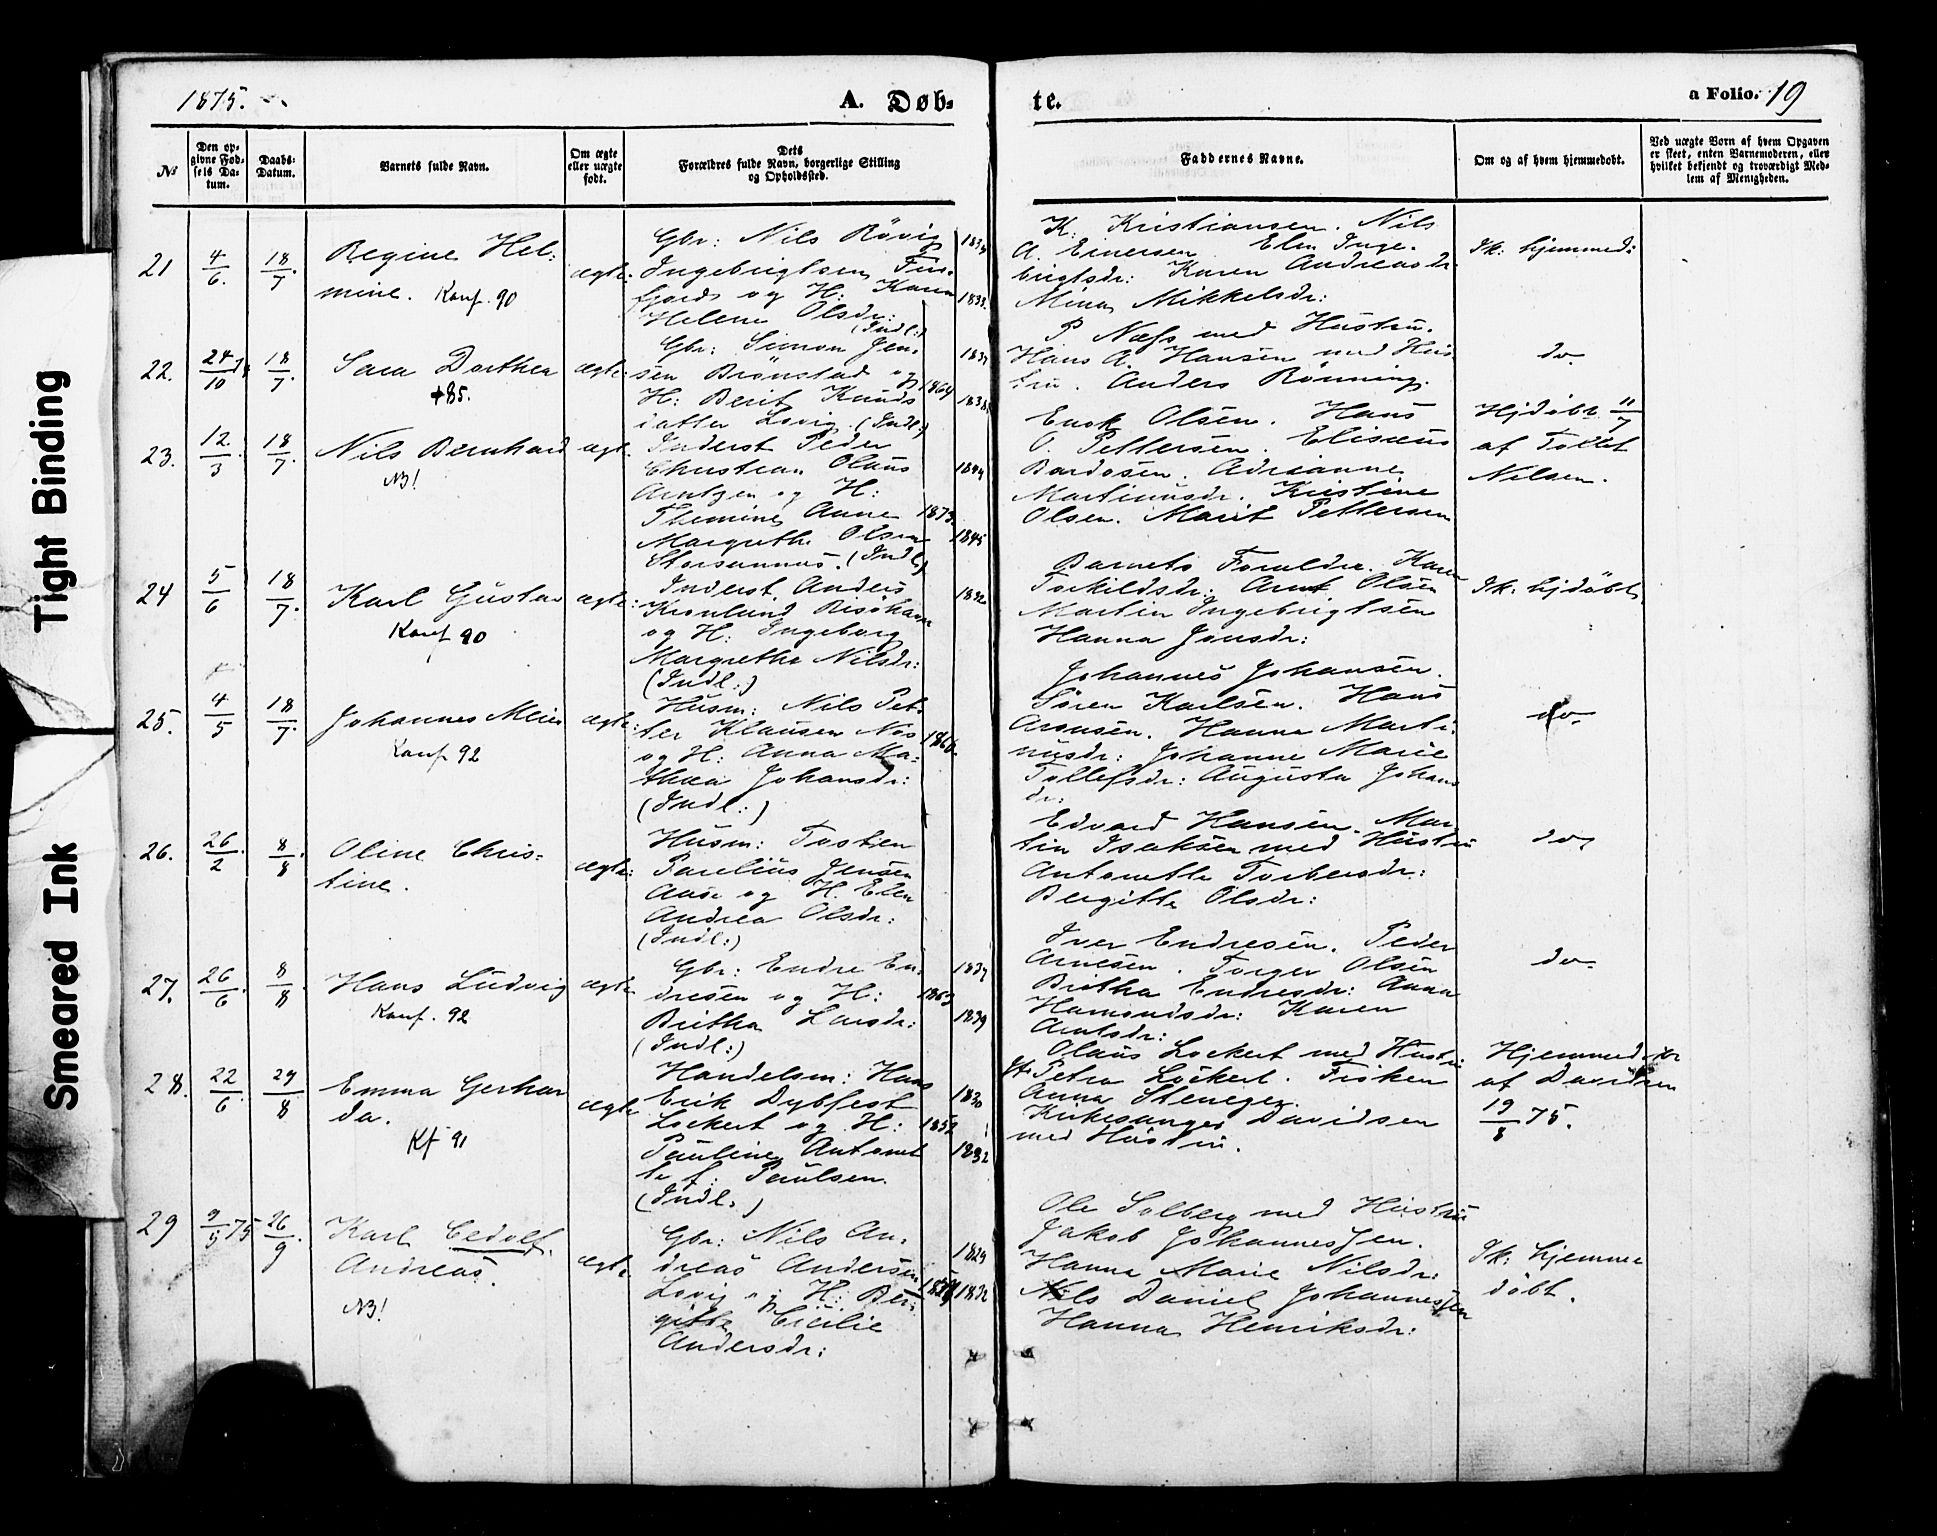 Tight Binding
Smeared Ink
1875.
A. Døb-
te.
a Folio. 19
No
Den op-
givne Fød-
sels Da-
tum.
Daabs-
Datum.
Barnets fulde Navn.
Om ægte
eller uægte
født.
Dets
Forældres fulde Navn, borgerlige Stilling
og Opholdssted.
Faddernes Navne.
Om og af hvem hjemmedøbt.
Ved uægte Børn af hvem Opgaven
er skeet, enten Barnemoderen, eller
hvilket bekjendt og troværdigt Med-
lem af Menigheden.
21
4/6.
18/7.
Regine Hel-
mine. Konf. 90
ægte.
Gbr: Nils Rövig
Ingebrigtsen
fjord og H: Karen
Helene Olsdr:
(Indl:)
1833.
K: Kristiansen. Nils
A. Einersen Elen Inge-
brigtsdr: Karen Andreasdr
Mina Mikkelsdr:
Ik: hjemmed:
22.
24/10
18/7.
Sara Dorthea
+85.
ægte.
Gbr: Simon Jen-
sen Brönstad og
H: Berit Knuds
datter Lovig. (Indl:)
1864
P Næss med Hustru.
Hans A. Hansen med Hus
tru. Anders Rönning.
do
23.
12/3
18/7.
Nils Bernhard
NB!
ægt.
Inderst Peder
Christian Olaus
Arntzen og H:
Anne
Margrethe Olsen
(Indl:)
1844
1873.
1845
Enok Olsen. Hans
O. Pettersen. Elisæus
Bardosen. Adrianne
Martinusdr. Kristine
Olsen. Marit Pettersen
Hjdöbt 11/7
af Tollef
Nilsen.
24
5/6
18/7.
Karl Gustav
Konf 90
ægte:
Inderst. Anders
Kronlund
og H: Ingeborg
Margrethe Nilsdr:
(Indl:)
Barnets Forældre. Karen
Torkildsdr: Arnt Olsen
Martin Ingebrigtsen
Hanna Jonsdr:
Ik: hjdöbt.
25.
4/5
18/7.
Johannes Meier
Konf 92
ægte:
Husm: Nils Pet-
ter Klausen Nös
og H: Anna Ma-
thea Johansdr:
(Indl:)
1866.
Johannes Johansen.
Sören Karlsen. Hans
Aronsen. Hanna Marti-
nusdr: Johanne Marie
Tollefsdr: Augusta Johans
dr:
do.
26.
26/2
8/8
Oline Chris-
tine.
ægte:
Husm: Tosten
Parelius Jensen
Aune og H. Elen
Andrea Olsdr:
(Indl:)
Edvard Hansen. Mar
tin Isaksen med Hustru
Antonette Torbersdr:
Bergitte Olsdr:
do
27.
26/6
8/8
Hans Ludvig
Konf. 92
ægte
Gbr: Endre En-
dresen og H:
Britha Larsdr:
(Indl:)
1863
1839
Iver Endresen. Peder
Arnesen. Torger Olsen
Britha Endresdr: Anna
Hamondsdr: Karen
Arntsdr:
do.
28.
22/6
29/8
Emma Gerhar
da.
Kf 91
ægte
Handelsm: Hans
Erik Dybfest
Lockert og H:
Pauline Antonet
te f: Paulsen.
(Indl.)
1830
1832
Olaus Lockert med Hustru
Petra Lockert.
Anna
Kirkesanger Davidsen
med Hustru.
Hjemmed
af Davidsen
19/8 75.
29
9/5 75
26/9
Karl Cedolf.
Andreas.
NB!
ægte
Gbr: Nils An-
dreas Andersen
Lovig og H: Ber-
gitte Cicilie
Andersdr:
1829
1832
Ole Solberg med Hustru
Jakob Johannessen.
Hanna Marie Nilsdr:
Nils Daniel Johannessen
Hanna Henriksdr:
Ik: hjemme
döbt.